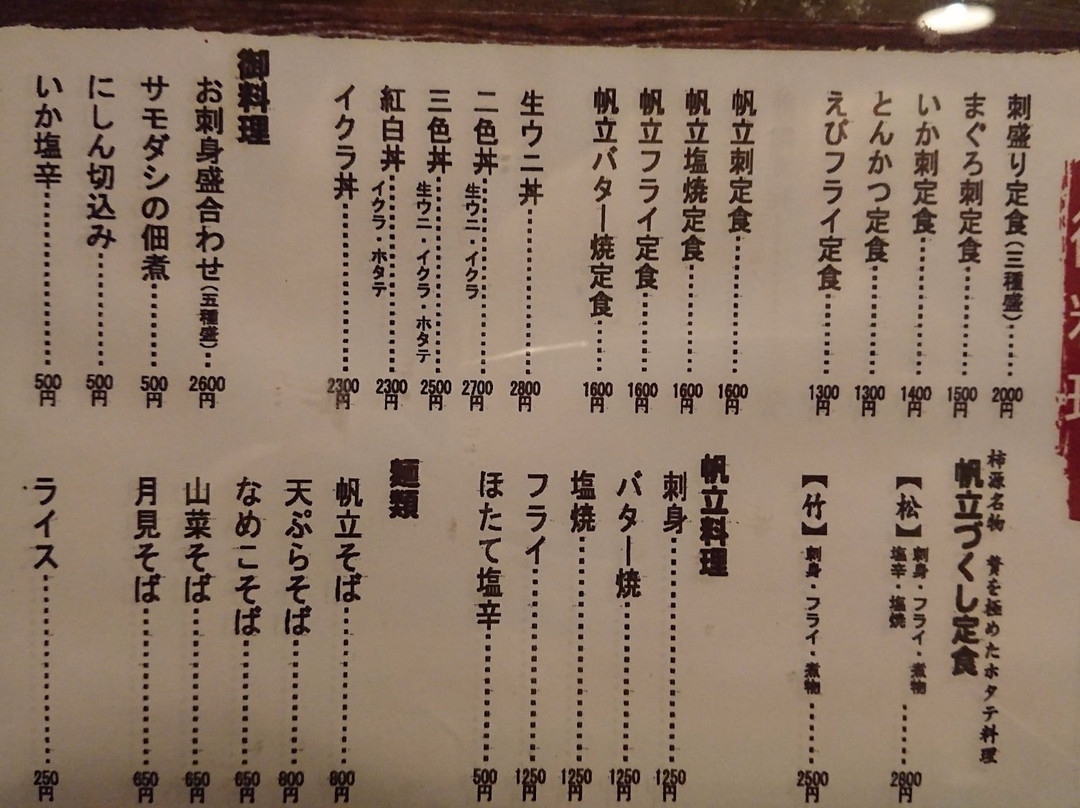 刺盛り定食(三種盛)……2000円
まぐろ刺定食……1500円
いか刺定食……1400円
とんかつ定食……1300円
えびフライ定食……1300円
帆立刺定食……1600円
帆立塩焼定食……1600円
帆立フライ定食……1600円
帆立バター焼定食……1600円
生ウニ丼……2800円
二色丼……2700円
生ウニ・イクラ
三色丼……2500円
生ウニ・イクラ・ホタテ
紅白丼……2300円
イクラ・ホタテ
イクラ丼……2300円
御料理
お刺身盛合わせ(五種盛)…2600円
サモダシの佃煮……500円
にしん切込み……500円
いか塩辛……500円
柿源名物 贅を極めたホタテ料理
帆立づくし定食
【松】刺身・フライ・煮物……2800円
塩辛・塩焼
【竹】刺身・フライ・煮物……2500円
帆立料理
刺身……1250円
バター焼……1250円
塩焼……1250円
フライ……1250円
ほたて塩辛……500円
麺類
帆立そば……800円
天ぷらそば……800円
なめこそば……650円
山菜そば……650円
月見そば……650円
ライス……250円